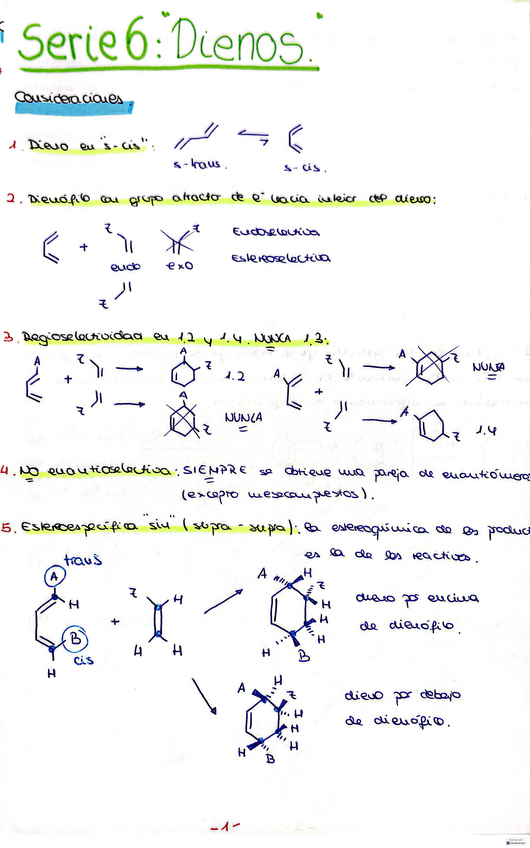 Serie 6: "Dienos."
Consideraciones.
1. Dieno en "s-cis":
s-trans. s-cis.
2. Dienófilo con grupo atractor de e⁻ hacia interior del dieno:
+ Z Z Endoselectiva
endo exo Estereoselectiva
Z
3. Regioselectividad en 1.2 y 1.4. NUNCA 1.3:
A + Z → A Z 1.2 A + Z → A Z NUNCA
Z → A Z NUNCA Z → A Z 1.4
4. NO enantioselectiva: SIEMPRE se obtiene una pareja de enantiómeros
(excepto mesocompuestos).
5. Estereoespecífica "sin" (supra-supra): la estereoquímica de los product
es la de los reactivos.
trans
A H Z H A H Z H dieno por encima
+ de dienófilo.
B H H H H H B
cis
H
A H Z H dieno por debajo
H H de dienófilo.
H B H
-1-